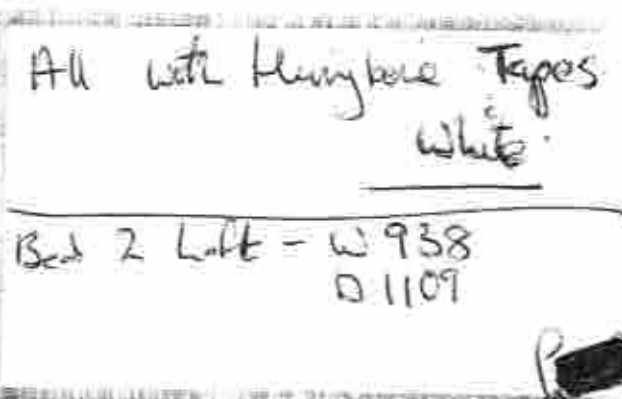 All with Herringbone Tapes
White
Bed 2 Loft - W 938
D 1109